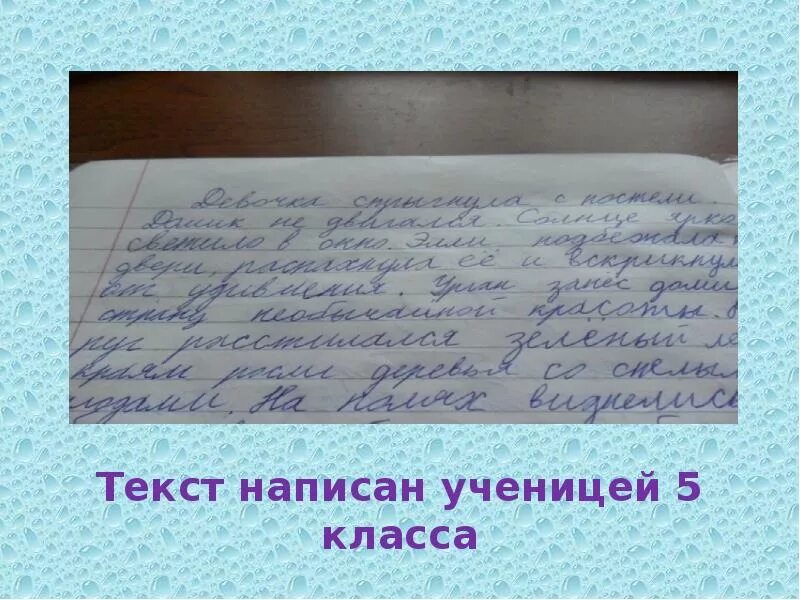 Девочка спрыгнула с постели.
Домик не двигался. Солнце ярко
светило в окно. Элли подбежала
двери, распахнула её и вскрикнул
от удивления. Ураган занёс доми
страну необычайной красоты. В
руг расстилался зелёный ле
краям росли деревья со спелым
лодами. На полях виднелись
Текст написан ученицей 5
класса